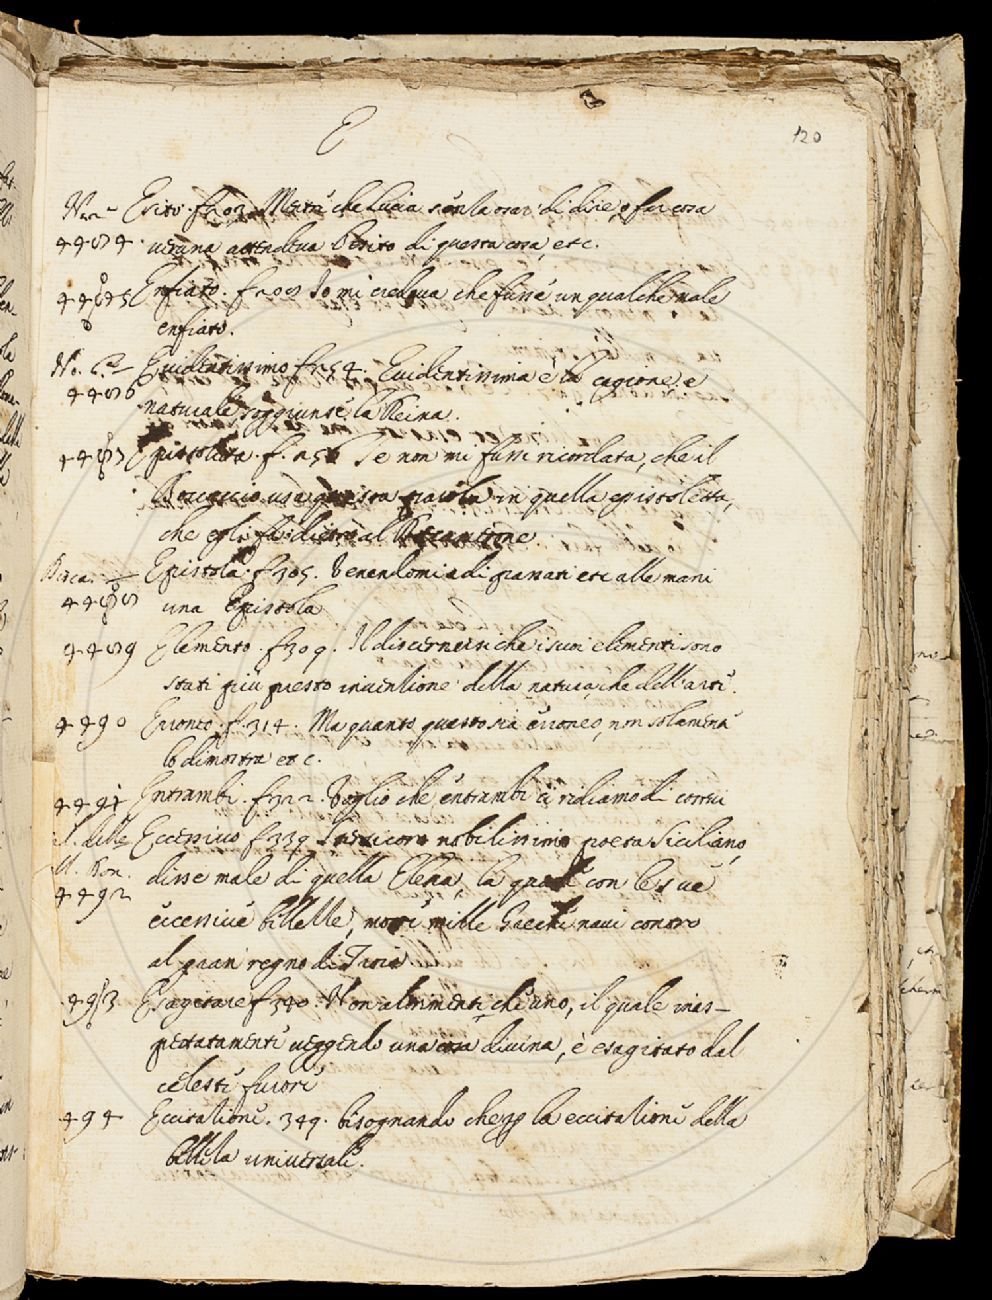 E
120
Esito. f. 203. Mentre che Lucia senza osar di dire, o far cosa
4484. veruna attendeva l'esito di questa cosa, etc.
4485 Enfiato. f. 209 Io mi credeva che fusse un qualche male
enfiato.
Evidentissimo f. 254. Evidentissima è la cagione, e
4486
naturale soggiunse la Reina.
4487 Epistoletta. f. 256 Se non mi fussi ricordata, che il
Boccaccio usa questa parola in quella epistoletta,
che egli fa dietro al Decamerone
Epistola. f. 305. Venendomi a di passati etc alle mani
4488 una Epistola
4489 Elemento. f. 309. Il discernere che i suoi elementi sono
stati più presto inventione della natura che dell'arte.
4490 Erroneo. f. 314. Ma quanto questo sia erroneo, non solamente
lo dimostra etc.
4491 Entrambi. f. 322. Voglio che entrambi ci ridiamo di costui
Eccessivo f. 339 Stesicoro nobilissimo poeta Siciliano,
disse male di quella Elena, la quale con le sue
4492
eccessive bellezze, mosse mille Greche navi contro
al gran regno di Troia.
4493 Esagitare f. 340 Non altrimenti che uno, il quale inas-
pettatamente veggendo una cosa divina, è esagitato dal
celeste furore
4494 Eccitatione. 349. bisognando che per la eccitatione della
bellezza universale.